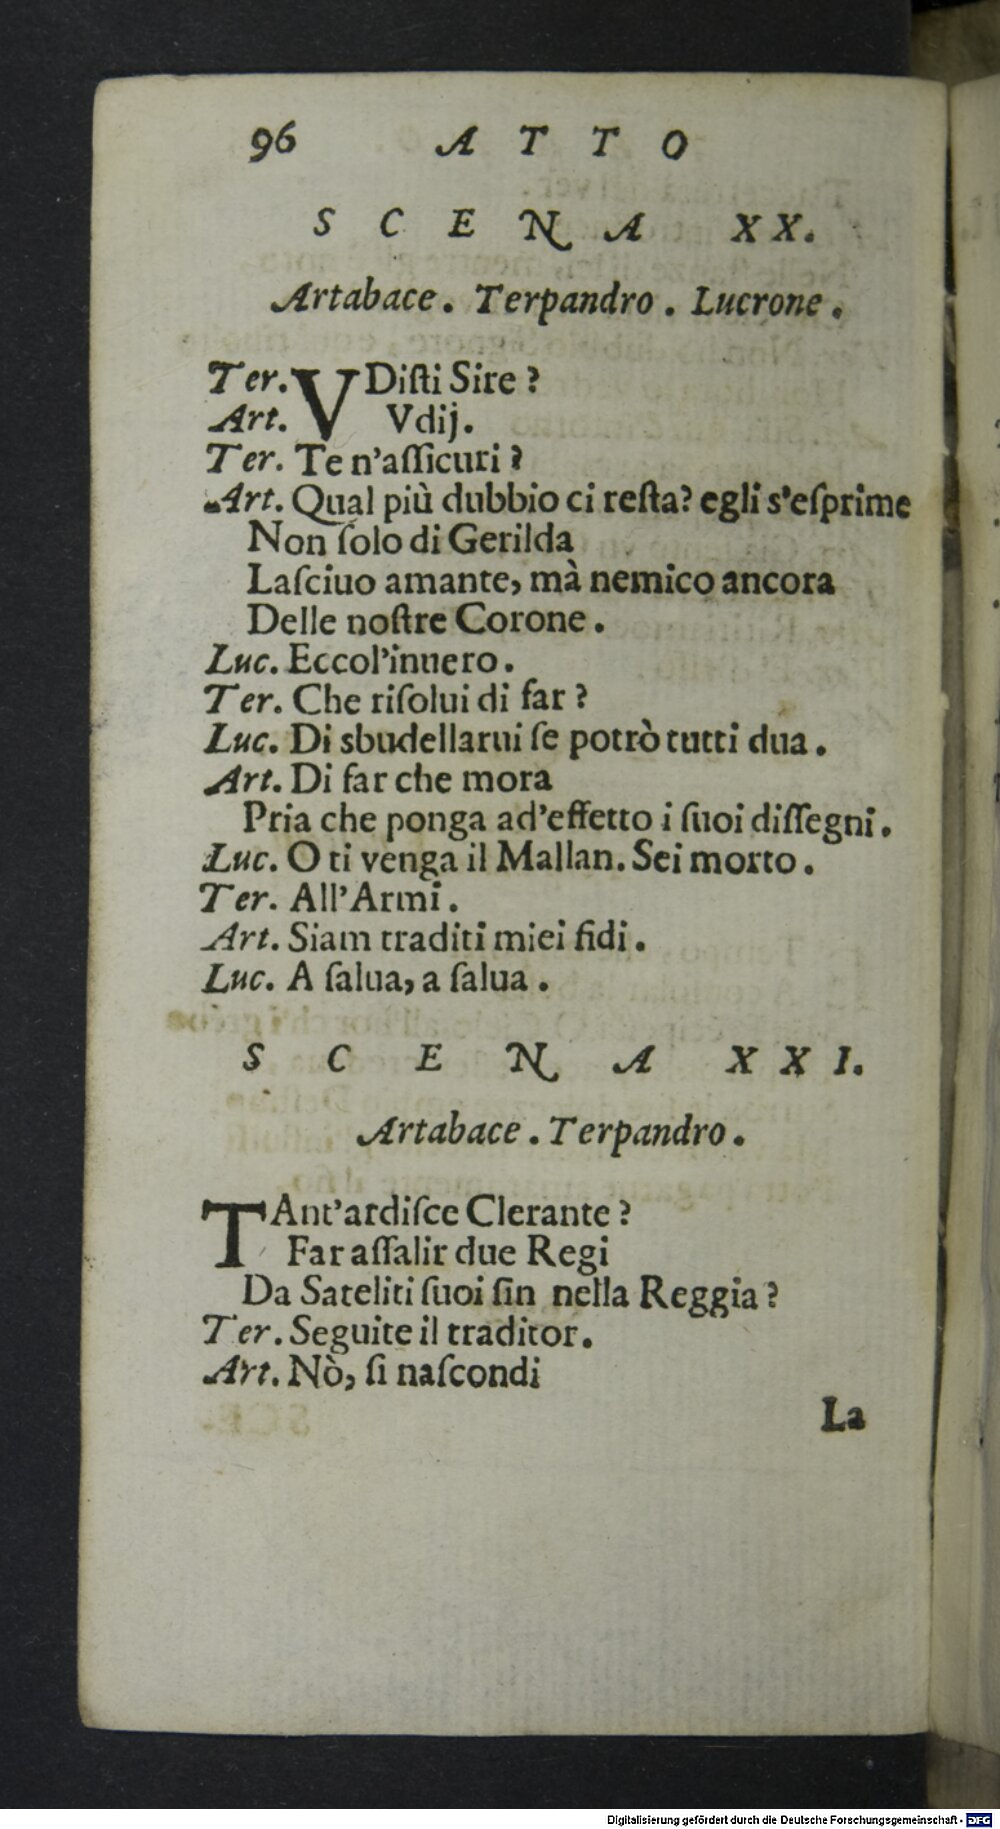 96 ATTO
SCENA XX.
Artabace. Terpandro. Lucrone.
Ter. VDiſti Sire?
Art. Vdij.
Ter. Te n'aſſicuri?
Art. Qual più dubbio ci reſta? egli s'eſprime
Non ſolo di Gerilda
Laſciuo amante, mà nemico ancora
Delle noſtre Corone.
Luc. Eccol'inuero.
Ter. Che riſolui di far?
Luc. Di sbudellarui ſe potrò tutti dua.
Art. Di far che mora
Pria che ponga ad'effetto i ſuoi diſſegni.
Luc. O ti venga il Mallan. Sei morto.
Ter. All'Armi.
Art. Siam traditi miei fidi.
Luc. A ſalua, a ſalua.
SCENA XXI.
Artabace. Terpandro.
TAnt'ardiſce Clerante?
Far aſſalir due Regi
Da Sateliti ſuoi ſin nella Reggia?
Ter. Seguite il traditor.
Art. Nò, ſi naſcondi
La
Digitalisierung gefördert durch die Deutsche Forschungsgemeinschaft - DFG